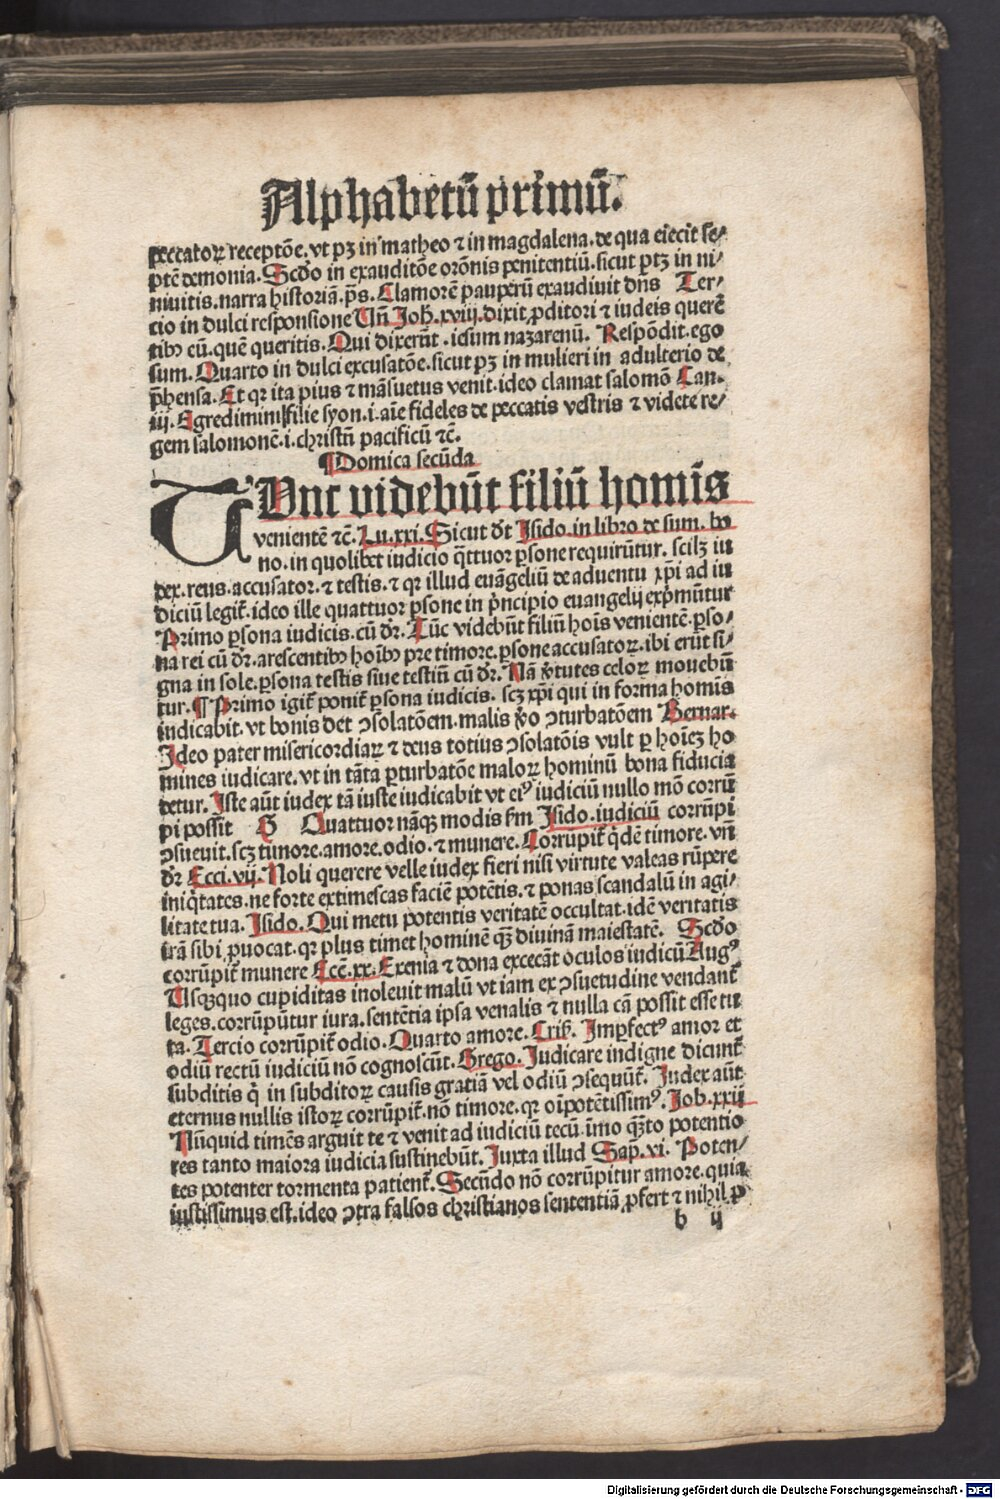 Alphabetū primū.
peccatoꝝ receptōe. vt pꝫ in matheo ⁊ in magdalena. de qua eiecit se⸗
ptē demonia. Scd̓o in exauditōe orōnis penitentiū. sicut ptꝫ in ni⸗
niuitis. narra historiā. p̄s. Clamorē pauperū exaudiuit dn̄s Ter⸗
cio in dulci responsione Vn̄ Joh̄. xviij. dixit ꝓditori ⁊ iudeis querē
tibꝰ eū. quē queritis. Qui dixerūt. iesum nazarenū. Respōdit. ego
sum. Quarto in dulci excusatōe. sicut pꝫ in mulieri in adulterio de
p̄hensa. Et qꝛ ita pius ⁊ māsuetus venit. ideo clamat salomō Can.
iij. Egredimini filie syon. i. aīe fideles de peccatis vestris ⁊ videte re⸗
gem salomonē. i. christū pacificū ⁊c̄.
¶ Domica secūda
TVnc videbūt filiū homīs
venientē ⁊c̄. Lu. xxi. Sicut dt̄ Isido. in libro de sum. bo
no. in quolibet iudicio q̄ttuor ꝑsone requirūtur. scilꝫ iu
dex. reus. accusator. ⁊ testis. ⁊ qꝛ illud euāgeliū de aduentu xp̄i ad iu
diciū legit᷑. ideo ille quattuor ꝑsone in p̄ncipio euangelij exp̄mūtur
Primo ꝑsona iudicis. cū dr̄. Tūc videbūt filiū hoīs venientē. ꝑso⸗
na rei cū dr̄. arescentibꝰ hoībꝰ pre timore. ꝑsone accusatoꝝ. ibi erūt si⸗
gna in sole. ꝑsona testis siue testiū cū dr̄. Nā v̓tutes celoꝝ mouebū
tur. ¶ Primo igit᷑ ponit᷑ ꝑsona iudicis. scꝫ xp̄i qui in forma homīs
iudicabit. vt bonis det ↄsolatōem. malis v̓o ↄturbatōem Bernar.
Ideo pater misericordiaꝝ ⁊ deus totius ↄsolatōis vult ꝑ hoīeꝫ ho
mines iudicare. vt in tāta ꝑturbatōe maloꝝ hominū bona fiducia
detur. Iste aūt iudex tā iuste iudicabit vt eiꝰ iudiciū nullo mō corrū
pi possit S Quattuor nāqꝫ modis scd̓m Isido. iudiciū corrūpi
ↄsueuit. scꝫ timore. amore. odio. ⁊ munere. Corrupit᷑ q̓dē timore. vn̄
dr̄ Ecci. vij. Noli querere velle iudex fieri nisi virtute valeas rūpere
iniq̓tates. ne forte extimescas faciē potētis. ⁊ ponas scandalū in agi⸗
litate tua. Isido. Qui metu potentis veritatē occultat. idē veritatis
irā sibi ꝓuocat. qꝛ plus timet hominē qꝫ̄ diuinā maiestatē. Scd̓o
corrūpit᷑ munere Eccē. xx. Exenia ⁊ dona excecāt oculos iudicū Augꝰ
Vsqꝫquo cupiditas inoleuit malū vt iam ex ↄsuetudine vendant᷑
leges. corrūpūtur iura. sentētia ipsa venalis ⁊ nulla cā possit esse tu
ta. Tercio corrūpit᷑ odio. Quarto amore. Cris̄. Imꝑfectꝰ amor et
odiū rectū iudiciū nō cognoscūt. Grego. Iudicare indigne dicunt᷑
subditis q̓ in subditoꝝ causis gratiā vel odiū ↄsequūt᷑. Iudex aūt
eternus nullis istoꝝ corrūpit᷑. nō timore. qꝛ oīpotētissimꝰ. Job. xxij
Nūquid timēs arguit te ⁊ venit ad iudiciū tecū. imo qꝫ̄to potentio
res tanto maiora iudicia sustinebūt. Iuxta illud Sap. vi. Poten⸗
tes potenter tormenta patient᷑. Secūdo nō corrūpitur amore. quia
iustissimus est. ideo ↄtra falsos christianos sententiā ꝓfert ⁊ nihil ꝑ
b ij
Digitalisierung gefördert durch die Deutsche Forschungsgemeinschaft - DFG